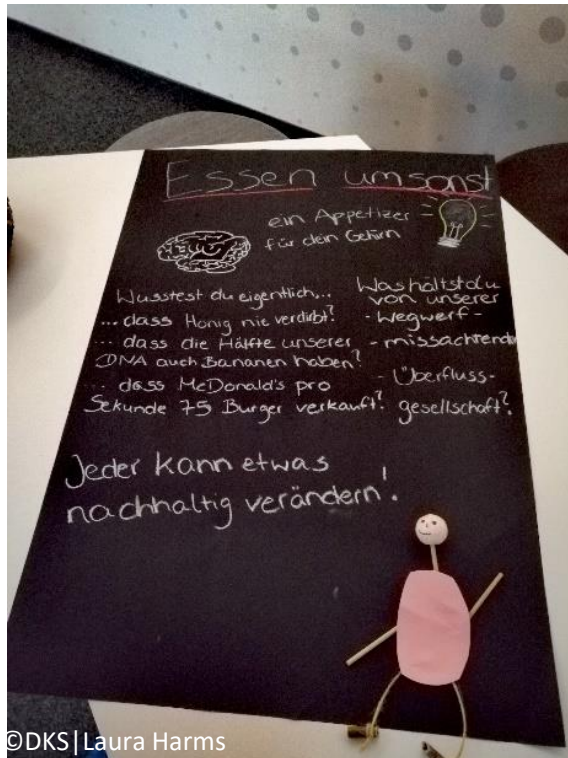 Essen umsonst
ein Appetizer
für dein Gehirn
Wusstest du eigentlich...
... dass Honig nie verdirbt?
... dass die Hälfte unserer
DNA auch Bananen haben?
... dass McDonald's pro
Sekunde 75 Burger verkauft?
Was hältst du
von unserer
- Wegwerf-
- missachtende
- Überfluss-
gesellschaft?
Jeder kann etwas
nachhaltig verändern!
©DKS|Laura Harms